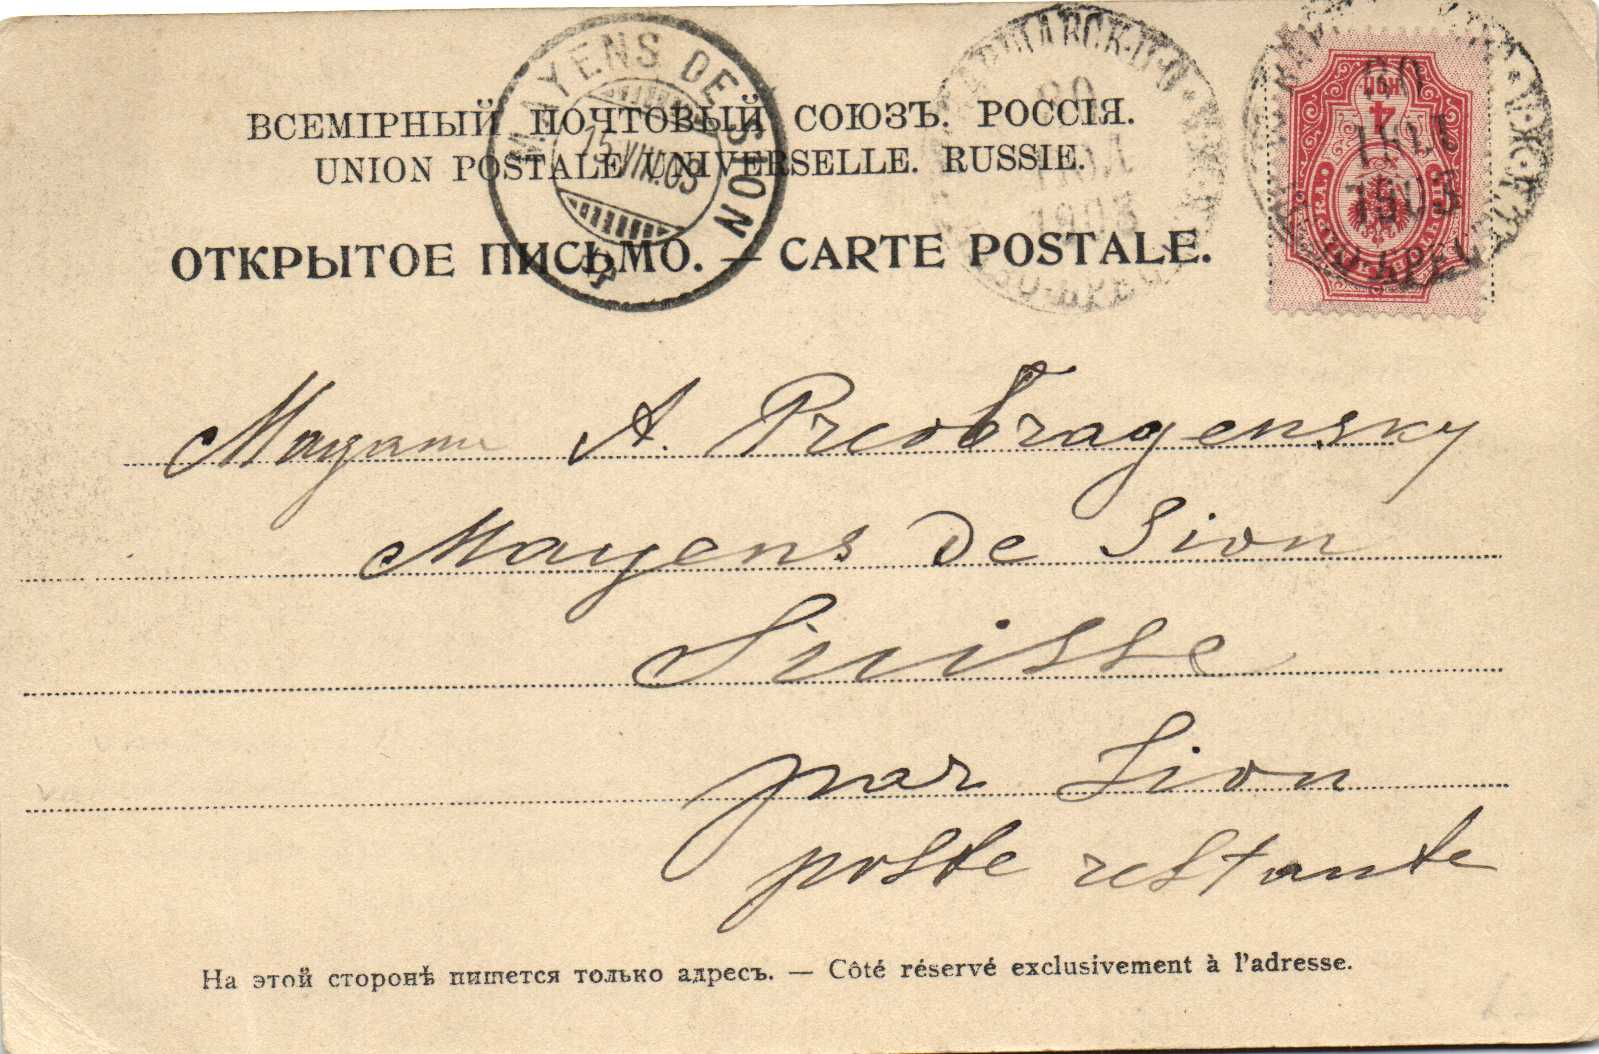 ВСЕМІРНЫЙ ПОЧТОВЫЙ СОЮЗЪ. РОССІЯ.
UNION POSTALE UNIVERSELLE. RUSSIE.
ОТКРЫТОЕ ПИСЬМО. — CARTE POSTALE.
MAYENS DE SION
15.VIII.03
1903
4
1903
Madame A. Preobragensky
Mayens de Sion
Suisse
par Sion
poste restante
На этой сторонѣ пишется только адресъ. — Côté réservé exclusivement à l'adresse.